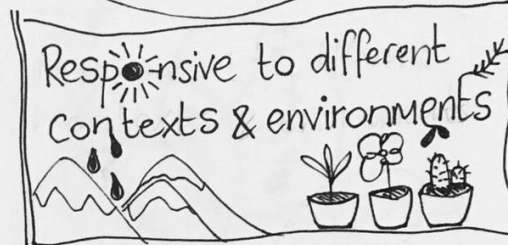 Responsive to different
contexts & environments